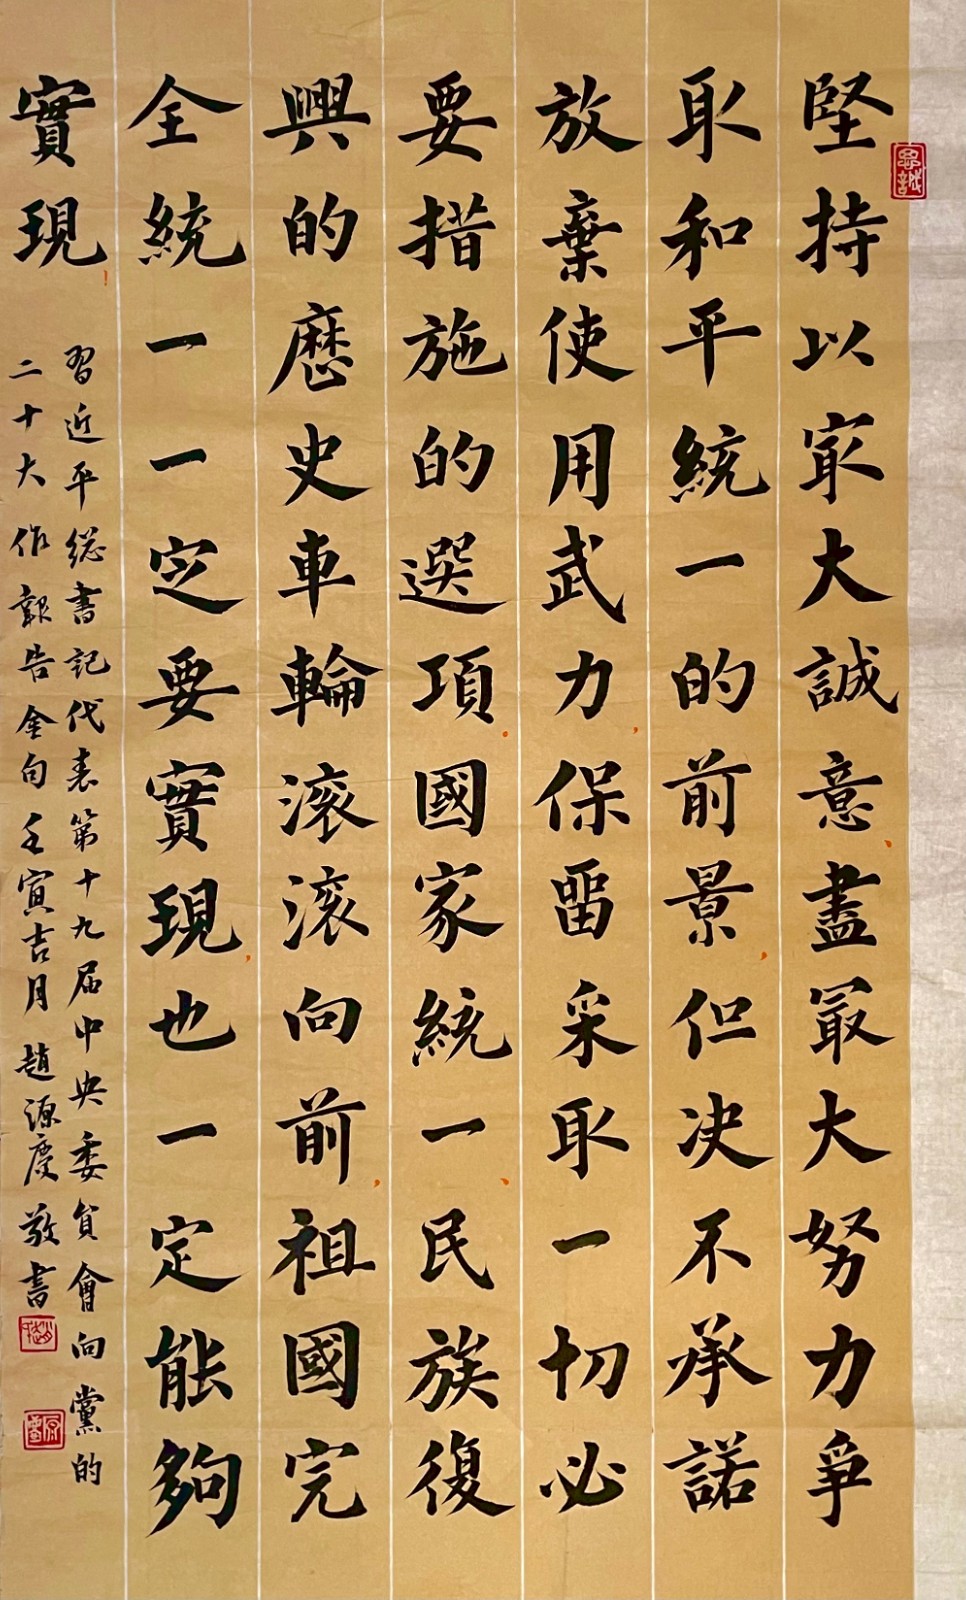 忠誠
堅持以㝡大誠意、盡最大努力爭
取和平統一的前景、但决不承諾
放棄使用武力、保留采取一切必
要措施的選項。國家統一、民族復
興的歷史車輪滚滚向前、祖國完
全統一一定要實現、也一定能夠
實現！
習近平總書記代表第十九届中央委員會向黨的
二十大作報告金句壬寅吉月 趙源慶敬書